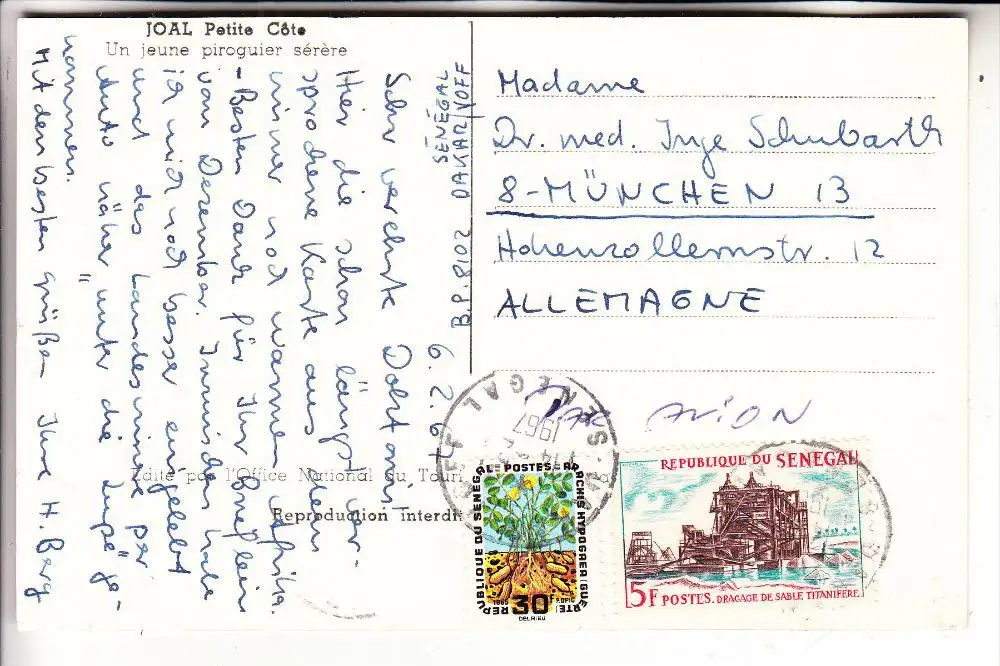 JOAL Petite Côte
Un jeune piroguier sérère
SÉNÉGAL
B.P. 8102 DAKAR/YOFF
6.2.67
Sehr verehrte Doktorin
Hier die schon längst ver-
sprochene Karte aus dem
immer noch warmen Afrika.
- Besten Dank für Ihr Brieflein
vom Dezember. Inzwischen habe
ich mich noch besser eingelebt
und das Landesinnere per
Auto näher "unter die Lupe" ge-
nommen.
Mit den besten Grüßen Ihre H. Berg
Madame
Dr. med. Inge Schubarth
8-MÜNCHEN 13
Hohenzollernstr. 12
ALLEMAGNE
PAR AVION
Edité par l'Office National du Touri
Reproduction interdit
SENEGAL
1967
REPUBLIQUE DU SENEGAL POSTES ARACHIS HYPOGAEA (GUERTE)
30F
1965
DELRIEU
REPUBLIQUE DU SENEGAL
5F POSTES. DRAGAGE DE SABLE TITANIFERE